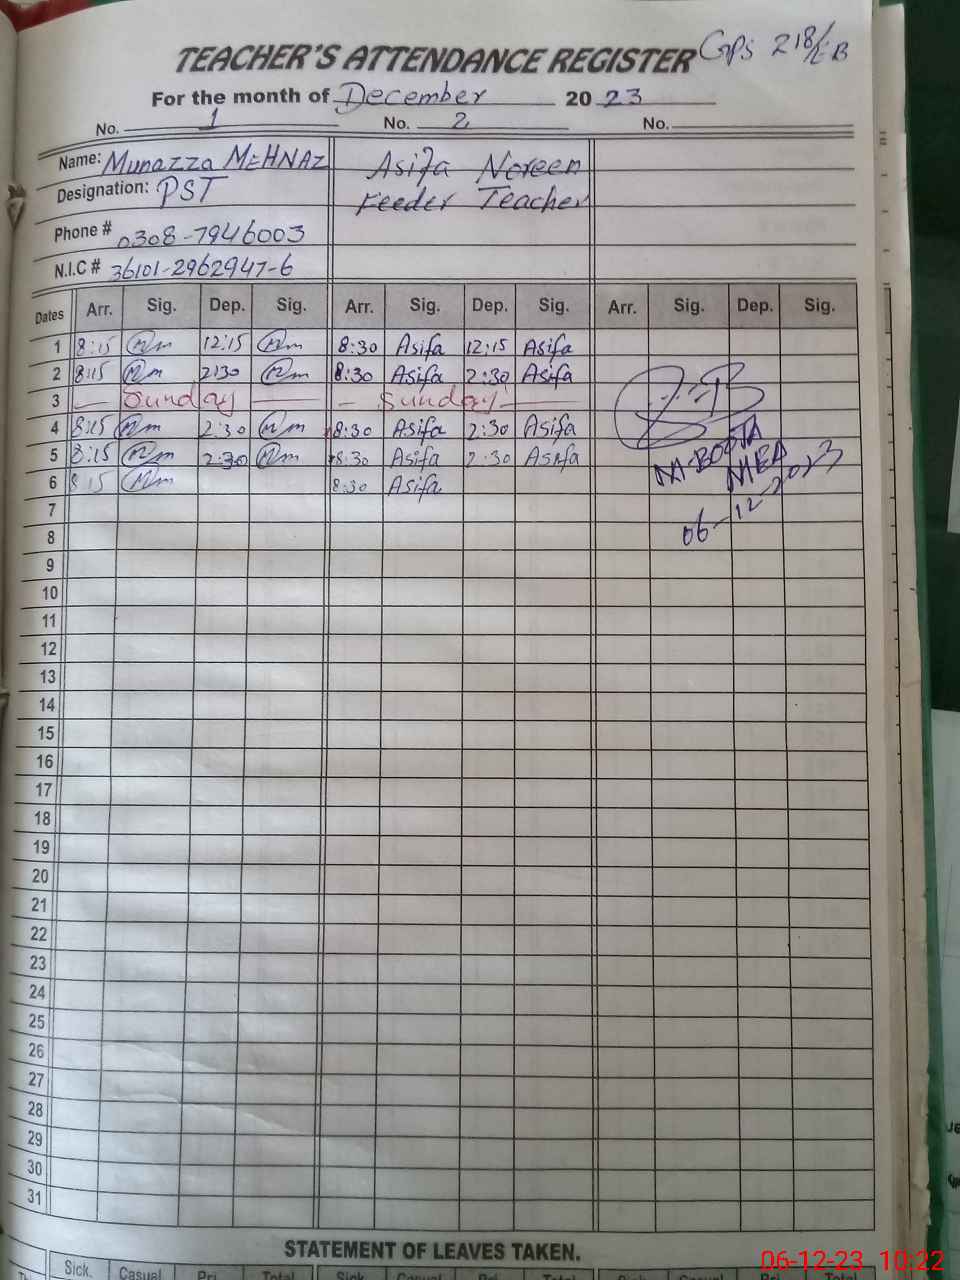 GPS 218/EB
TEACHER'S ATTENDANCE REGISTER
For the month of December 2023
No. 1 No. 2 No.
Name: Munazza MEHNAZ Asifa Noreen
Designation: PST Feeder Teacher
Phone # 0308-7946003
N.I.C # 36101-2962947-6
Dates Arr. Sig. Dep. Sig. Arr. Sig. Dep. Sig. Arr. Sig. Dep. Sig.
1 8:15 Mm 12:15 Mm 8:30 Asifa 12:15 Asifa
2 8:15 Mm 2:30 Mm 8:30 Asifa 2:30 Asifa
3 Sunday Sunday
4 8:15 Mm 2:30 Mm 8:30 Asifa 2:30 Asifa
5 8:15 Mm 2:30 Mm 8:30 Asifa 2:30 Asifa
6 8:15 Mm 8:30 Asifa
M.BOOTA
MEA
06-12-2023
7
8
9
10
11
12
13
14
15
16
17
18
19
20
21
22
23
24
25
26
27
28
29
30
31
STATEMENT OF LEAVES TAKEN.
Sick. Casual Pri. Total Sick. Casual Pri. Total Sick. Casual Pri. Total
06-12-23 10:22